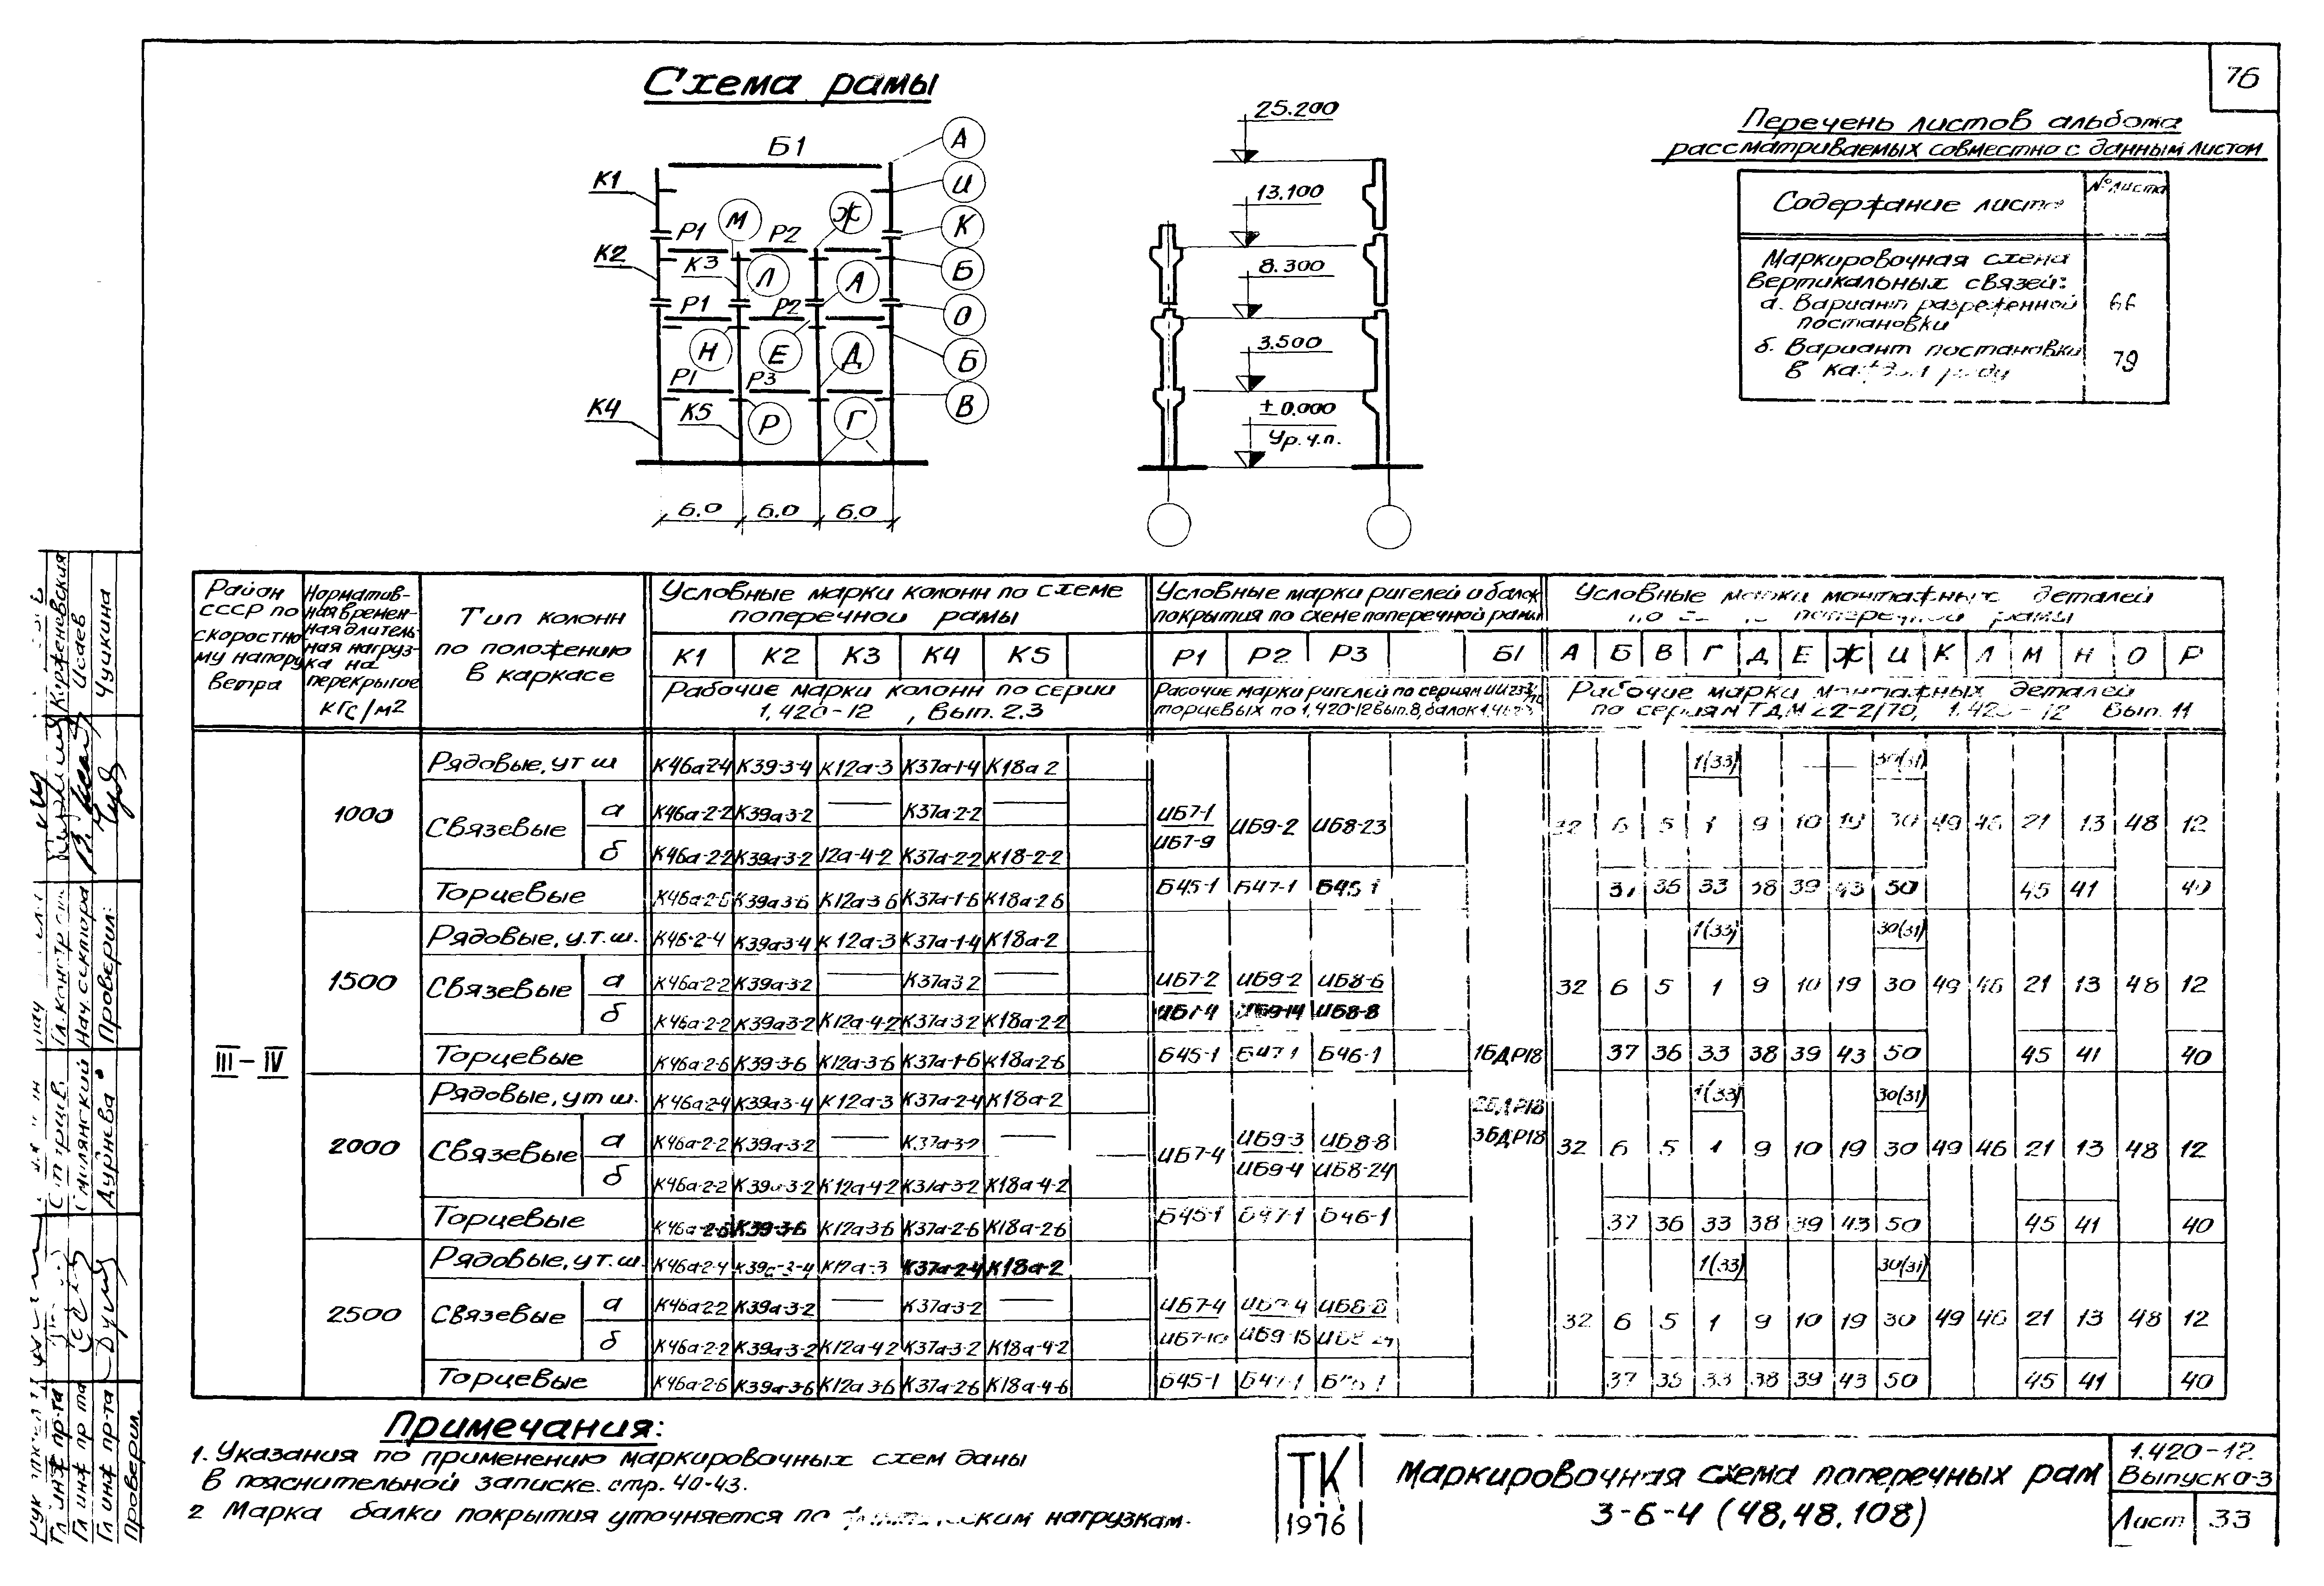 76
Схема рамы
Б1
К1
К2
К3
К4
К5
Р1
Р2
Р1
Р2
Р1
Р3
М
Ж
Л
А
Н
Е
Д
Р
Г
А
И
К
Б
О
Б
В
6.0 6.0 6.0
25.200
13.100
8.300
3.500
±0.000
Ур.ч.п.
Перечень листов альбома
рассматриваемых совместно с данным листом
Содержание листа
№ листа
Маркировочная схема
вертикальных связей:
а. Вариант разреженной
постановки
66
б. Вариант постановки
79
Район СССР по скоростному напору ветра
Нормативная временная длительная нагрузка на перекрытие кгс/м2
Тип колонн по положению в каркасе
Условные марки колонн по схеме поперечной рамы
К1 К2 К3 К4 К5
Рабочие марки колонн по серии 1.420-12, вып. 2.3
Условные марки ригелей и балок покрытия по схеме поперечной рамы
Р1 Р2 Р3 Б1
Рабочие марки ригелей по сериям
торцевых по 1.420-12 вып.8, балок
Условные марки монтажных деталей
поперечной рамы
А Б В Г Д Е Ж И К Л М Н О Р
Рабочие марки монтажных деталей
по сериям ТДМ 22-2/70, 1.420-12 Вып. 11
III-IV
1000
Рядовые, ут ш К46а-2-4 К39-3-4 К12а-3 К37а-1-4 К18а-2
1(33) 30(31)
Связевые
а К46а-2-2 К39а-3-2 — К37а-2-2 —
б К46а-2-2 К39а-3-2 12а-4-2 К37а-2-2 К18-2-2
ИБ7-1
ИБ7-9
ИБ9-2 ИБ8-23
32 6 5 1 9 10 19 30 49 46 21 13 48 12
Торцевые К46а-2-6 К39а-3-6 К12а-3-6 К37а-1-6 К18а-2-6
Б45-1 Б47-1 Б45-1
37 36 33 38 39 43 50 45 41 40
1500
Рядовые, у.т.ш. К46-2-4 К39а-3-4 К12а-3 К37а-1-4 К18а-2
1(33) 30(31)
Связевые
а К46а-2-2 К39а-3-2 — К37а3 2 —
б К46а-2-2 К39а3-2 К12а-4-2 К37а-3-2 К18а-2-2
ИБ7-2 ИБ9-2 ИБ8-6
ИБ7-4 ИБ9-14 ИБ8-8
32 6 5 1 9 10 19 30 49 46 21 13 48 12
Торцевые К46а-2-6 К39-3-6 К12а-3-6 К37а-1-6 К18а-2-6
Б45-1 Б47-1 Б46-1
37 36 33 38 39 43 50 45 41 40
1БДР18
2БДР18
3БДР18
2000
Рядовые, ут ш. К46а-2-4 К39а3-4 К12а-3 К37а-2-4 К18а-2
1(33) 30(31)
Связевые
а К46а-2-2 К39а-3-2 — К37а-3-2 —
б К46а-2-2 К39а-3-2 К12а-4-2 К37а-3-2 К18а-4-2
ИБ7-4
ИБ9-3 ИБ8-8
ИБ9-4 ИБ8-24
32 6 5 1 9 10 19 30 49 46 21 13 48 12
Торцевые К46а-2-6 К39-3-6 К12а3-6 К37а-2-6 К18а-2-6
Б45-1 Б47-1 Б46-1
37 36 33 38 39 43 50 45 41 40
2500
Рядовые, у т.ш. К46а-2-4 К39а-3-4 К12а-3 К37а-2-4 К18а-2
1(33) 30(31)
Связевые
а К46а-2-2 К39а-3-2 — К37а-3-2 —
б К46а-2-2 К39а-3-2 К12а-4-2 К37а-3-2 К18а-4-2
ИБ7-4 ИБ9-4 ИБ8-8
ИБ7-10 ИБ9-15 ИБ8-24
32 6 5 1 9 10 19 30 49 46 21 13 48 12
Торцевые К46а-2-6 К39а-3-6 К12а3-6 К37а-2-6 К18а-4-6
Б45-1 Б47-1
37 36 33 38 39 43 50 45 41 40
Примечания:
1. Указания по применению маркировочных схем даны
в пояснительной записке. стр. 40-43.
2 Марка балки покрытия уточняется по нагрузкам.
ТК
1976
Маркировочная схема поперечных рам
3-6-4 (48,48,108)
1.420-12
Выпуск 0-3
Лист 33
Коржневский
Исаев
Чушкина
Нач. сектора
Проверил:
Смилянский
Дурнева
Гл инж пр-та
Гл инж пр-та
Гл инж пр-та
Проверил.